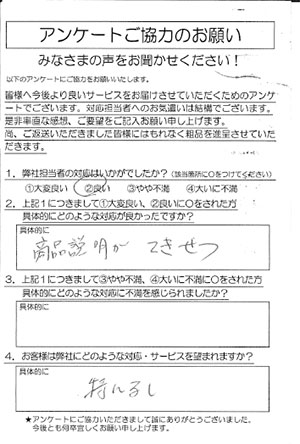 アンケートご協力のお願い
みなさまの声をお聞かせください！
以下のアンケートにご協力をお願いいたします。
皆様へ今後より良いサービスをお届けさせていただくためのアンケ
ートでございます。対応担当者へのお気遣いは結構でございます。
是非率直な感想、ご要望をご記入お願い申し上げます。
尚、ご返送いただきました皆様にはもれなく粗品を進呈させていた
だきます。
1．弊社担当者の対応はいかがでしたか？（該当箇所に〇をつけてください）
①大変良い ②良い ③やや不満 ④大いに不満
2．上記1につきまして①大変良い、②良いに〇をされた方
具体的にどのような対応が良かったですか？
具体的に
商品説明が てきせつ
3．上記1につきまして③やや不満、④大いに不満に〇をされた方
具体的にどのような対応に不満を感じられましたか？
具体的に
4．お客様は弊社にどのような対応・サービスを望まれますか？
具体的に
特になし
★アンケートにご協力いただきまして誠にありがとうございました。
今後とも何卒宜しくお願い申し上げます。